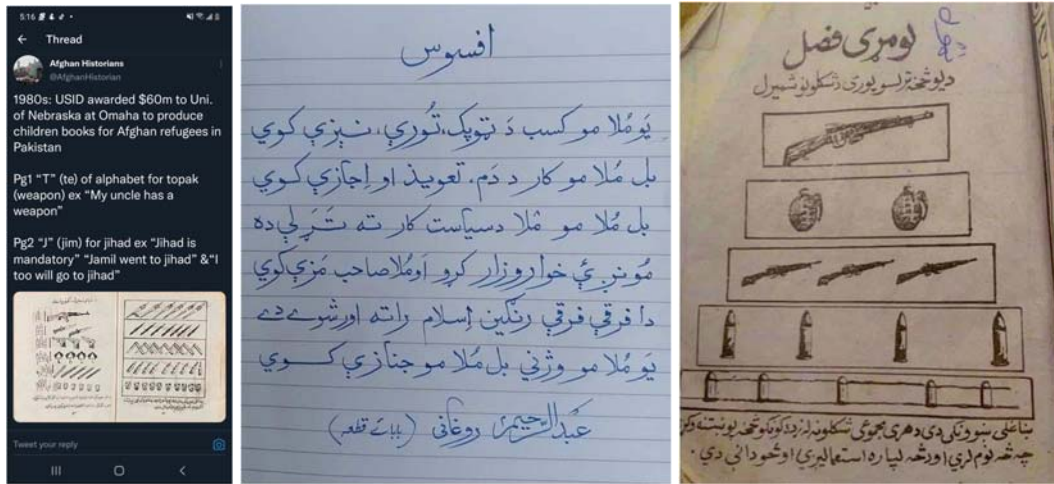 5:16
Thread
Afghan Historians
@AfghanHistorian
1980s: USID awarded $60m to Uni.
of Nebraska at Omaha to produce
children books for Afghan refugees in
Pakistan
Pg1 “T” (te) of alphabet for topak
(weapon) ex “My uncle has a
weapon”
Pg2 “J” (jim) for jihad ex “Jihad is
mandatory” “Jamil went to jihad” &“I
too will go to jihad”
Tweet your reply
افسوس
يَو مُلا مو کسب دَ ټوپک، تُورې، نېزې کوي
بل مُلا مو کار د دَم، تعويذ او اِجازې کوي
بل مُلا مو مُلا د سياست کار ته تَړلې ده
مُونږ ئې خوار و زار کړو او مُلا صاحب مَزې کوي
دا فرقې فرقې رنګين اِسلام راته اور شوے دے
يَو مُلا مو وژني بل مُلا مو جنازې کوي
عبدالرحيم روغانی (بابائے قطعہ)
لومړی فصل
ديو څخه تر پورې د شکلونو شمېرل
ښاغلی ښوونکی دی د هرې مجموعې شکلونه له زده کوونکو څخه پوښتنه وکړي
چه څه نوم لري او د څه لپاره استعماليږي او څو دانې دي.